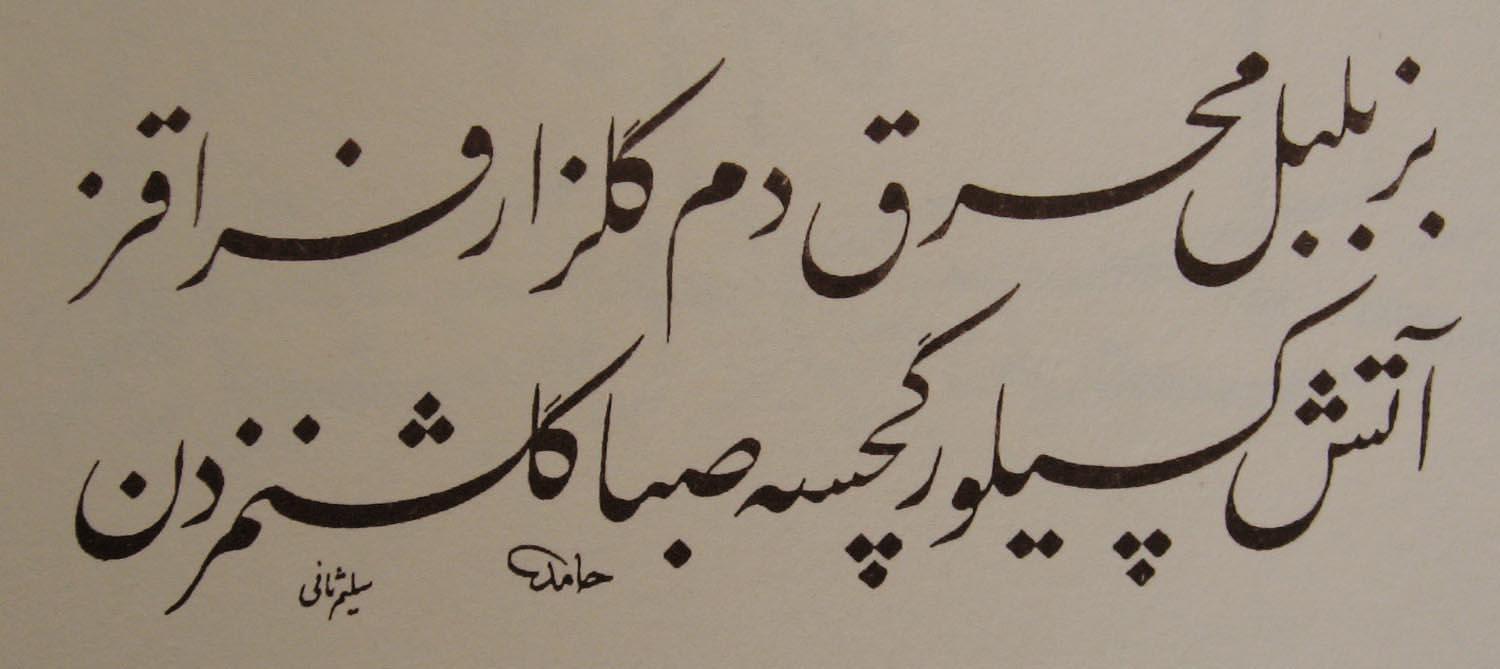 بز بلبل محرق دم گلزار فراقز
آتش کسیلور گچسه صبا گلشنمزدن
حامد
سلیم ثانی